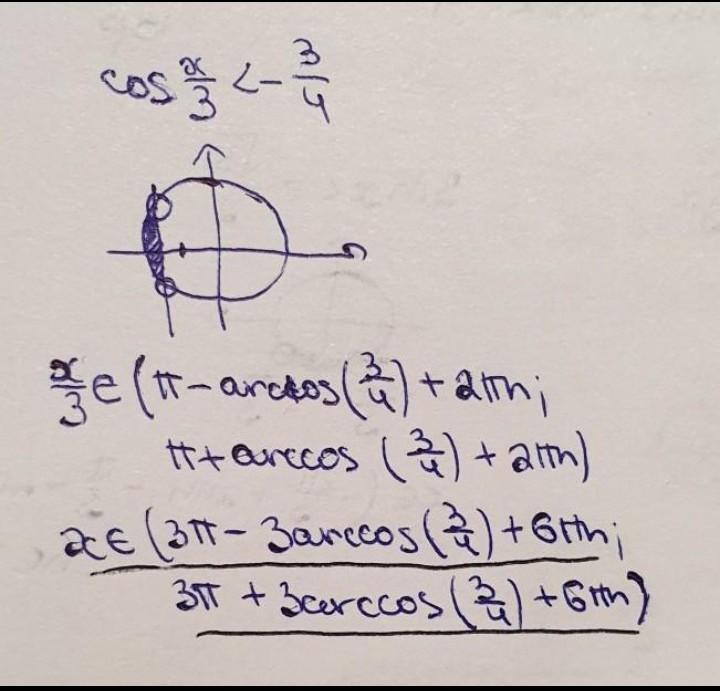 cos x/3 < -3/4
x/3 ∈ (π - arccos(3/4) + 2πn;
π + arccos (3/4) + 2πn)
x ∈ (3π - 3arccos(3/4) + 6πn;
3π + 3arccos(3/4) + 6πn)